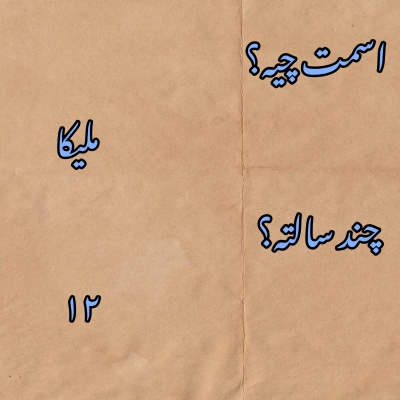 اسمت چیه؟
ملیکا
چند سالته؟
۱۲